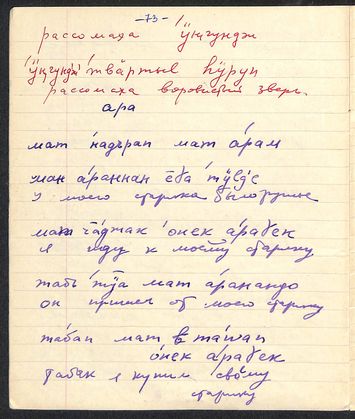 -73-
россомаха ӱӊгундэ
ӱӊгундэ твӓртыв hӱруп
россомаха воровитый зверь.
ара
мат надъран мат арам
ман араннан ёба тӱлде
у моего старика было ружье
мат чаджак онек араӷек
я иду к моему старику
табы тӱа мат аранандо
он пришел от моего старику
табап мат таwап
онек араӷек
табак я купил своему
старику